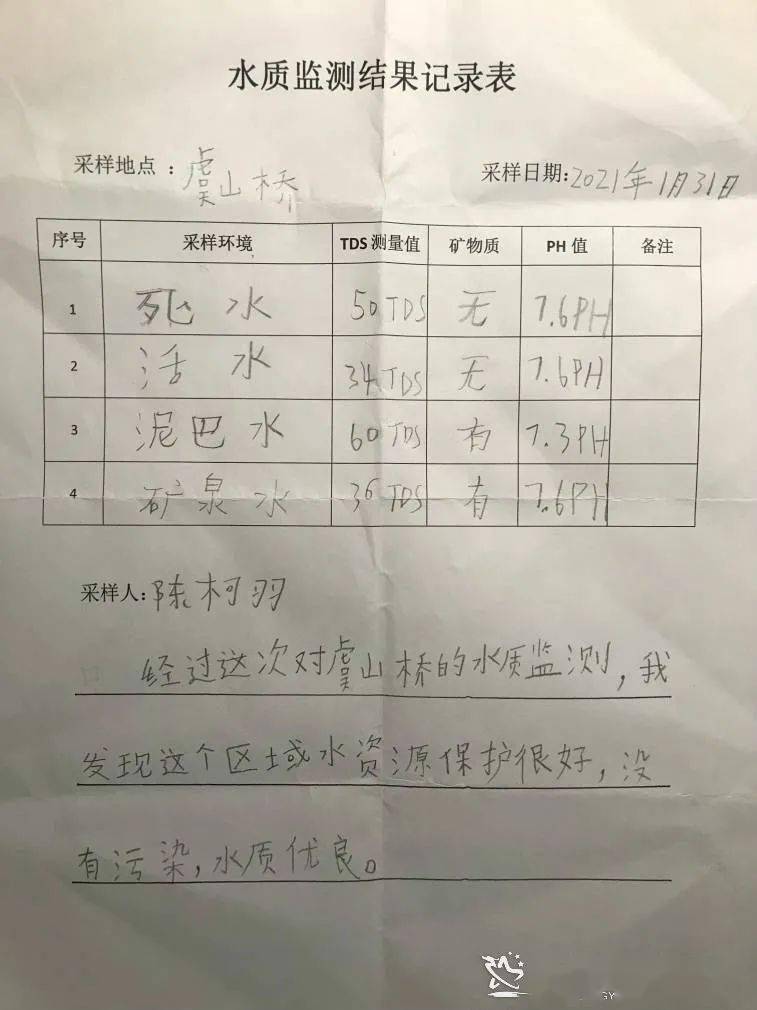 水质监测结果记录表
采样地点：虞山桥 采样日期:2021年1月31日
序号 采样环境 TDS 测量值 矿物质 PH 值 备注
1 死水 50 TDS 无 7.6PH
2 活水 34 TDS 无 7.6PH
3 泥巴水 60 TDS 有 7.3PH
4 矿泉水 36 TDS 有 7.6PH
采样人:陈柯羽
经过这次对虞山桥的水质监测,我
发现这个区域水资源保护很好,没
有污染,水质优良。
GY